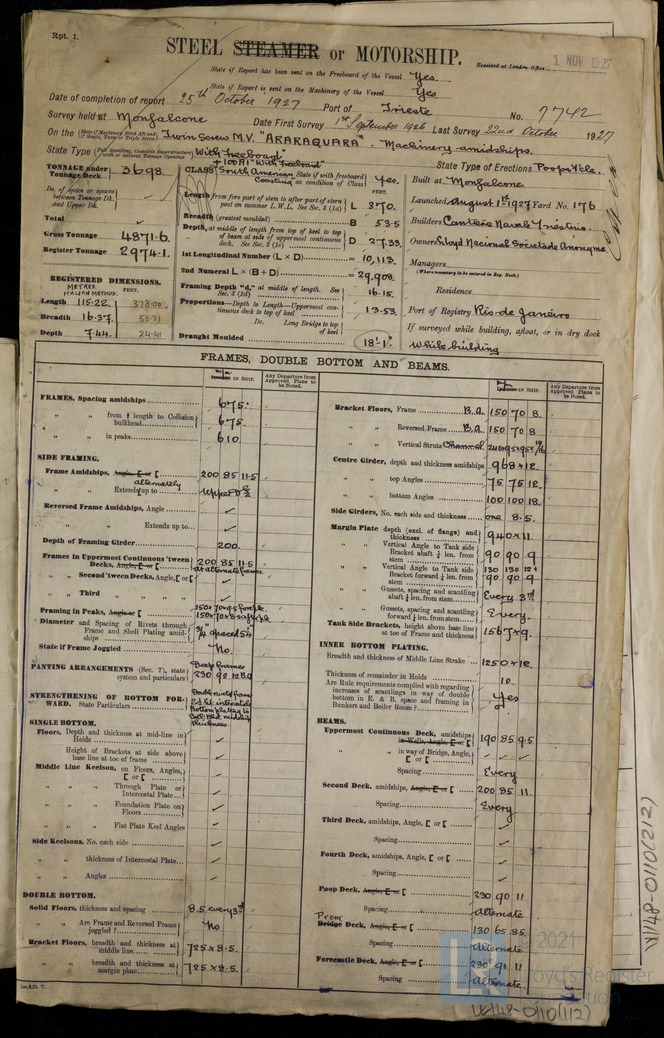 Rpt. 1.
STEEL STEAMER or MOTORSHIP.
Received at London Office
1 NOV 1927
State if Report has been sent on the Freeboard of the Vessel Yes.
State if Report is sent on the Machinery of the Vessel Yes
Date of completion of report 25th October 1927 Port of Trieste No. 7742
Survey held at Monfalcone Date First Survey 1st September 1926 Last Survey 22nd October 1927
On the Twin Screw M.V. "ARARAQUARA". Machinery amidships.
State Type With Freeboard State Type of Erections Poop &c.
TONNAGE under Tonnage Deck 3698
Do. of space or spaces between Tonnage Dk. and Upper Dk.
Total
Gross Tonnage 4871.6
Register Tonnage 2974.1
REGISTERED DIMENSIONS.
METRES. FEET.
ITALIAN METHOD.
Length 115.22 378.00
Breadth 16.37 53.71
Depth 7.44 24.41
CLASS +100A1 "With Freeboard"
"South American Coasting" State if with freeboard as condition of Class Yes.
FEET.
Length from fore part of stem to after part of stern post on summer L.W.L. See Sec. 3 (1a) L 370.
Breadth (greatest moulded) B 53.5
Depth, at middle of length from top of keel to top of beam at side of uppermost continuous deck. See Sec. 3 (1d) D 27.33
1st Longitudinal Number (L × D) = 10,113.
2nd Numeral L × (B + D) = 29,908
Framing Depth "d," at middle of length. See Sec. 3 (1d) 16.15
Proportions—Depth to Length—Uppermost continuous deck to top of keel 13.53
Do. Long Bridge to top of keel
Draught Moulded 18'.1"
Built at Monfalcone
Launched August 1st 1927 Yard No. 176
Builders Cantiere Navale Triestino.
Owners Lloyd Nacional Sociedade Anonyma
Managers
(Where necessary to be entered in Reg. Book)
Residence
Port of Registry Rio de Janeiro
If surveyed while building, afloat, or in dry dock
While building
FRAMES, DOUBLE BOTTOM AND BEAMS.
IN SHIP.
Any Departure from Approved Plans to be Noted.
IN SHIP.
Any Departure from Approved Plans to be Noted.
FRAMES, Spacing amidships 675.
" " from ⅕ length to Collision bulkhead 675.
" " in peaks 610
SIDE FRAMING.
Frame Amidships, Angle, E or [ 200 85 11.5
" " Extends up to alternately upper dk
Reversed Frame Amidships, Angle
" " Extends up to
Depth of Framing Girder 200
Frames in Uppermost Continuous 'tween Decks, Angle, E or [ 200 85 11.5 at alternate frames
" " Second 'tween Decks, Angle, [ or [
" " Third " " " "
Framing in Peaks, Angle or [
Diameter and Spacing of Rivets through Frame and Shell Plating amidships 3/4 spaced 5¼"
State if Frame Joggled No.
PANTING ARRANGEMENTS (Sec. 7), state system and particulars Deep frames 230 90 12 B.A
STRENGTHENING OF BOTTOM FORWARD. State Particulars
SINGLE BOTTOM.
Floors, Depth and thickness at mid-line in Holds
Height of Brackets at side above base line at toe of frame
Middle Line Keelson, on Floors, Angles, [ or [
" " Through Plate or Intercostal Plate
" " Foundation Plate on Floors
" " Flat Plate Keel Angles
Side Keelsons, No. each side
" " thickness of Intercostal Plate
" " Angles
DOUBLE BOTTOM.
Solid Floors, thickness and spacing 8.5 every 3rd
" " Are Frame and Reversed Frame joggled? No
Bracket Floors, breadth and thickness at middle line 725 × 8.5.
" " breadth and thickness at margin plate 725 × 8.5.
Bracket Floors, Frame B.A. 150 70 8.
" " Reversed Frame B.A. 150 70 8
" " Vertical Struts Channel
Centre Girder, depth and thickness amidships 968 × 12.
" " top Angles 75 75 12.
" " bottom Angles 100 100 12
Side Girders, No. each side and thickness one 8.5.
Margin Plate depth (excl. of flange) and thickness 940 × 11.
" " Vertical Angle to Tank side Bracket abaft ¼ len. from stem 90 90 9
" " Vertical Angle to Tank side Bracket forward ¼ len. from stem 130 130 12 90 90 9
" " Gussets, spacing and scantling abaft ¼ len. from stem Every 3rd
" " Gussets, spacing and scantling forward ¼ len. from stem Every.
Tank Side Brackets, height above base line at toe of Frame and thickness 1567 × 9.
INNER BOTTOM PLATING.
Breadth and thickness of Middle Line Strake 1250 × 12.
Thickness of remainder in Holds 10.
Are Rule requirements complied with regarding increases of scantlings in way of double bottom in E. & B. space and framing in Bunkers and Boiler Room? Yes
BEAMS.
Uppermost Continuous Deck, amidships in Wells, Angle, E or [ 190 85 9.5
" " in way of Bridge, Angle, [ or [
Spacing Every
Second Deck, amidships, Angle, E or [ 200 85 11.
Spacing Every
Third Deck, amidships, Angle, [ or [
Spacing
Fourth Deck, amidships, Angle, [ or [
Spacing
Poop Deck, Angle, E or [ 230 90 11
Spacing alternate
Prom
Bridge Deck, Angle, E or [ 130 65 8.5.
Spacing alternate
Forecastle Deck, Angle, E or [ 230 91 11
Spacing alternate.
© 2021
Lloyd's Register
Foundation
W148-0110(1/2)
W148-0110(212)